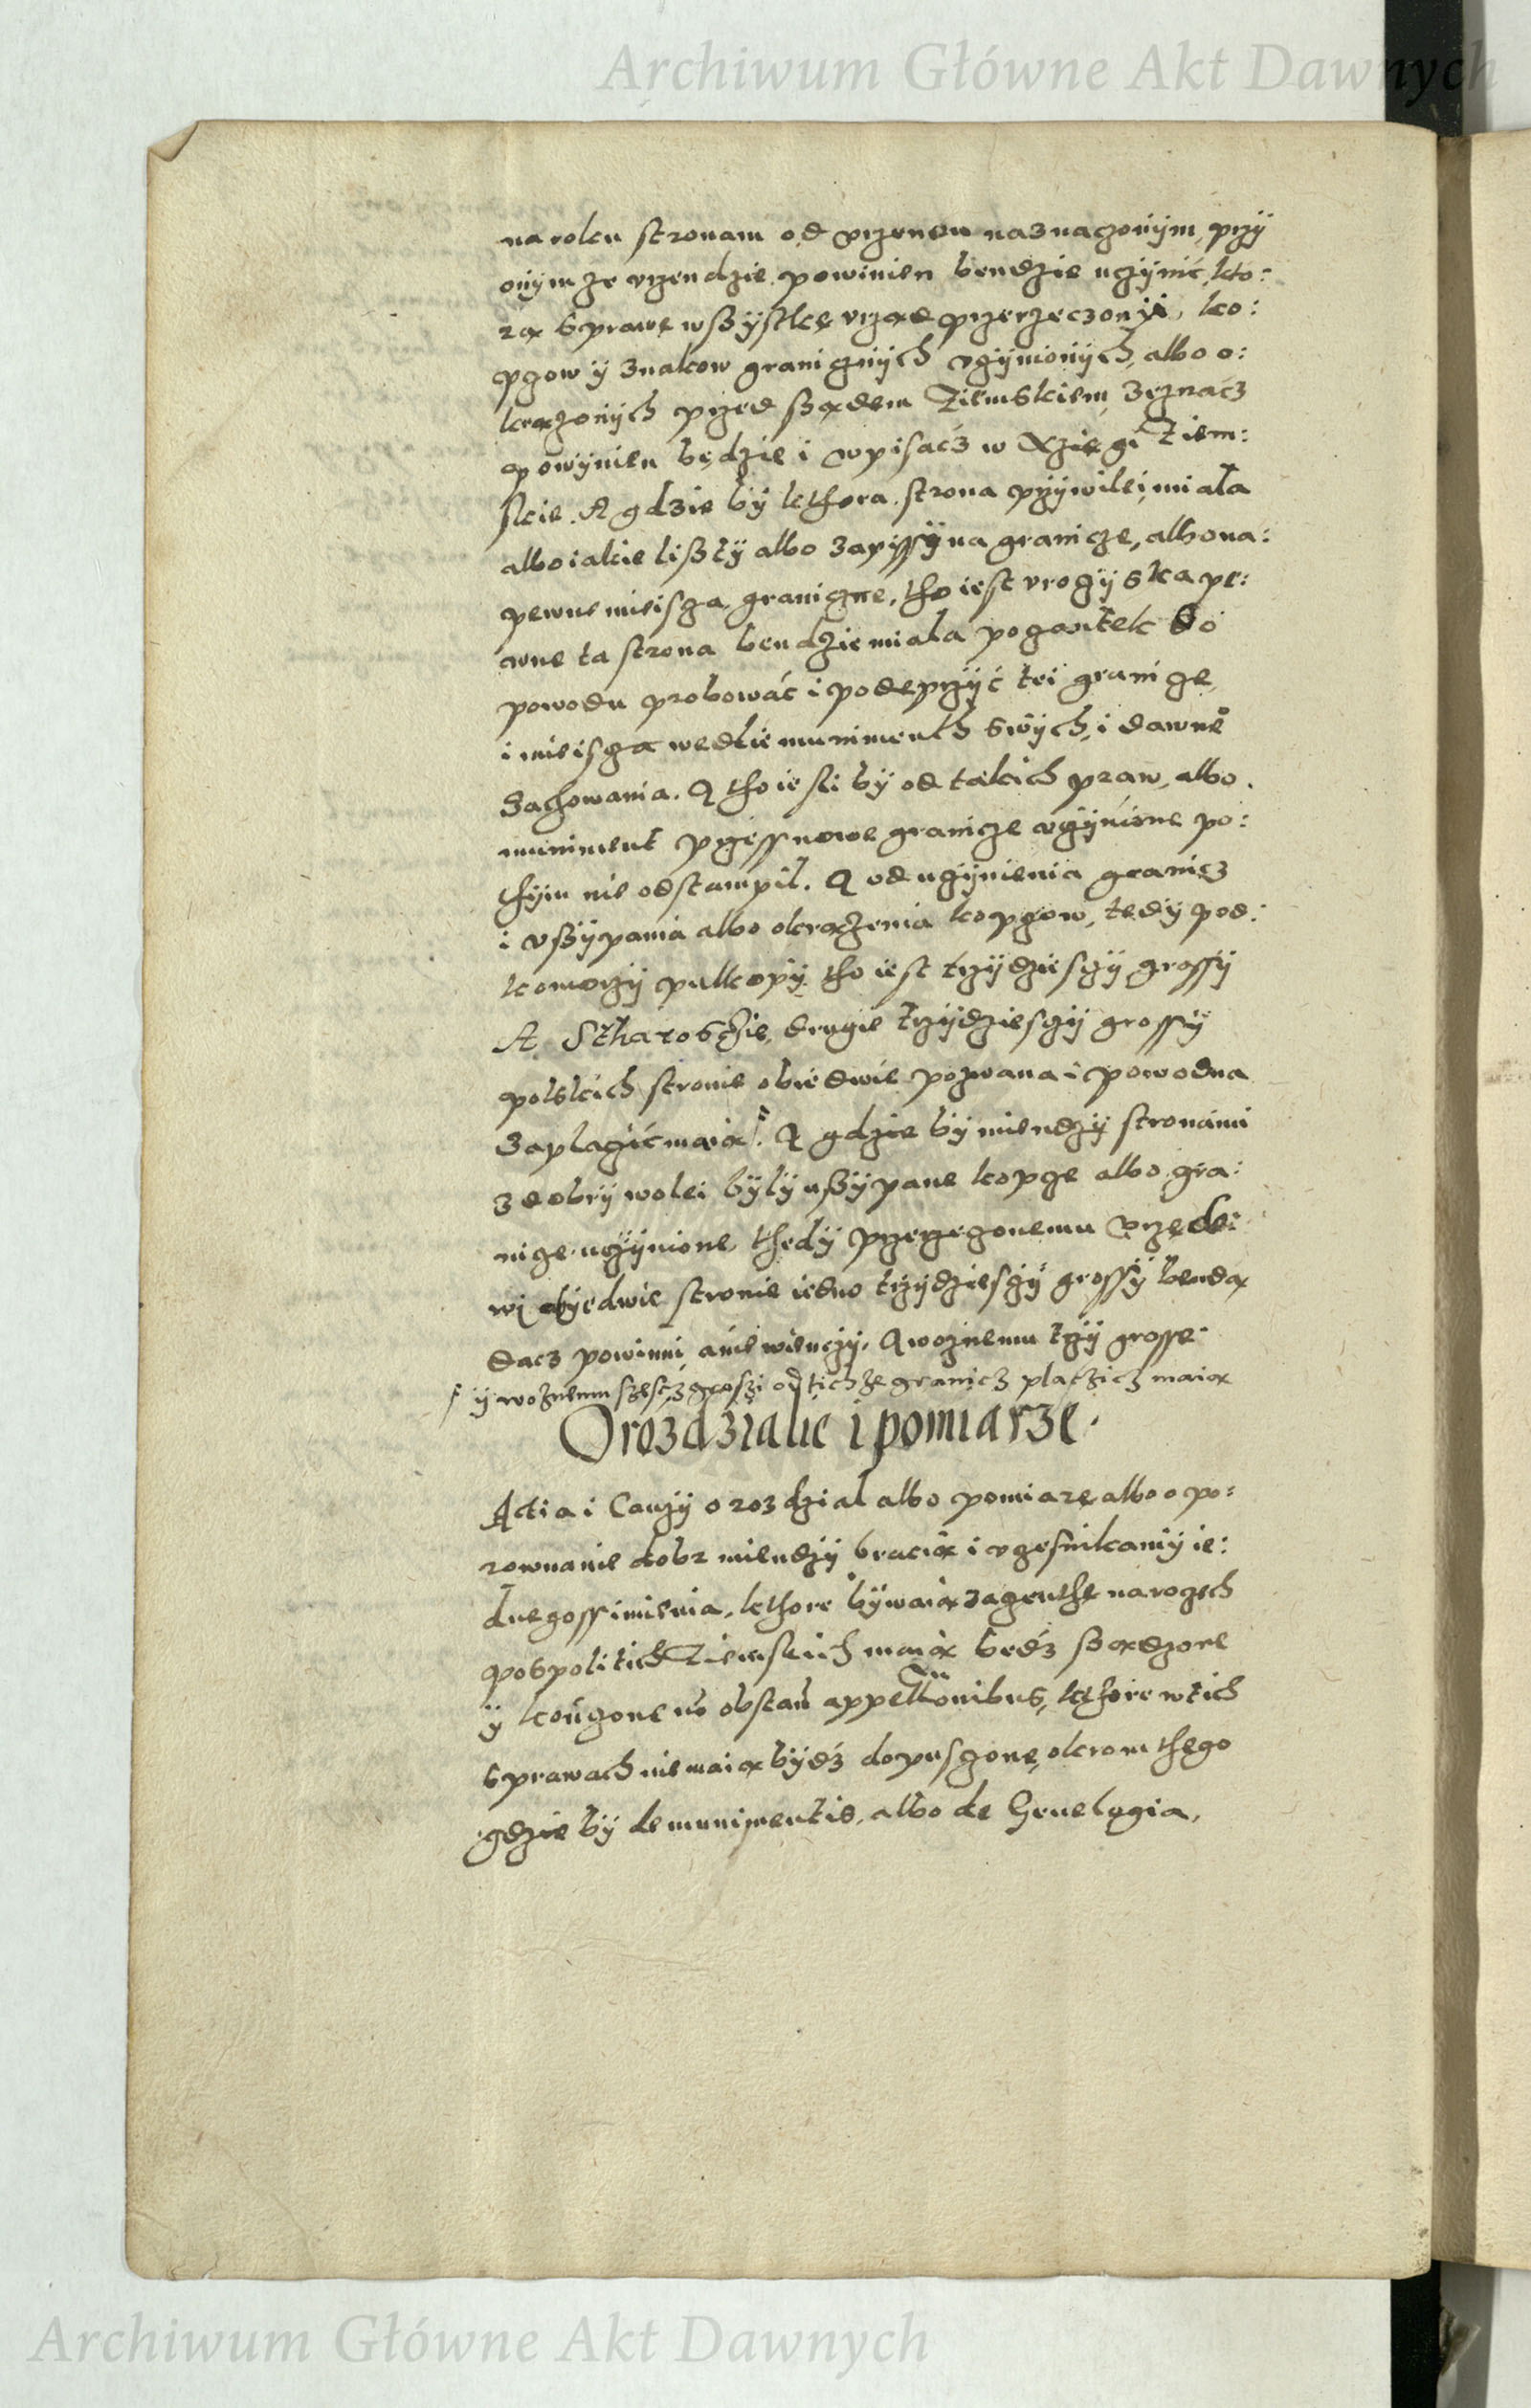 Archiwum Główne Akt Dawnych
na roku stronam od vrzendu naznaczonÿm, przÿ
onÿm ze vrzendzie powinien bendzie uczÿnić, kto:
rą sprawę wszÿstkę vrząd przerzeczonÿ, ko:
pczow ÿ znakow granicznÿch vczÿnionÿch, albo o:
krążonÿch przed sządem Ziemskiem, zeznacz
powÿnien będzie i wpisacz w Xzięgi Ziem:
skie. A gdzie bÿ kthora strona przÿwilei miała
albo iakie liszty albo zapissÿ na granicze, albo na:
pewne mieiscza, graniczne, tho iest vroczÿska pe:
wne ta strona bendzie miała początek do
powodu probować i podeprzÿć tei granice,
i mieiscza wedlie munimenth swÿch, i dawne°
zachowania. A tho iesli bÿ od takich praw, albo
muniment przess nowe granicze vczÿnione po:
thÿm nie odstampil. A od uczÿnienia granicz
i vszÿpania albo okrążenia kopczow, tedÿ pod:
komorzÿ pulkopÿ tho iest trzÿdziesczÿ grossÿ
A Stharosczie, drugie trzÿdziesczÿ grossÿ
polskich stronie obiedwie pozwana i powodna
zaplacić maią. A gdzie bÿ miendzÿ stronami
z dobrÿ wolei bÿlÿ uszÿpane kopcze albo gra:
nicze uczÿnione, thedÿ przerzeczonemu vrzędo:
wi obÿedwie stronie iedno trzÿdziesczÿ grossÿ benda
dacz powinni a nie wienczÿ. A woznemu trzÿ grosse
ÿ woznemu szescz groszi od tich ze granicz placzicz maią
O rozdzialie i pomiarze.
Actia i Cauzÿ o rozdzial albo pomiarę albo o po:
rownanie dobr miendzÿ bracią i vczesnikamÿ ie:
dnegoss imienia, kthore bÿwaią zaczenthe na roczech
pospolitich Ziemskich maią będz sządzone
ÿ kończone no obstan appellonibus, kthore w tich
sprawach nie maią bÿdź dopusczone, okrom thego
gdzie bÿ de munimentis, albo de Genelogia,
Archiwum Główne Akt Dawnych